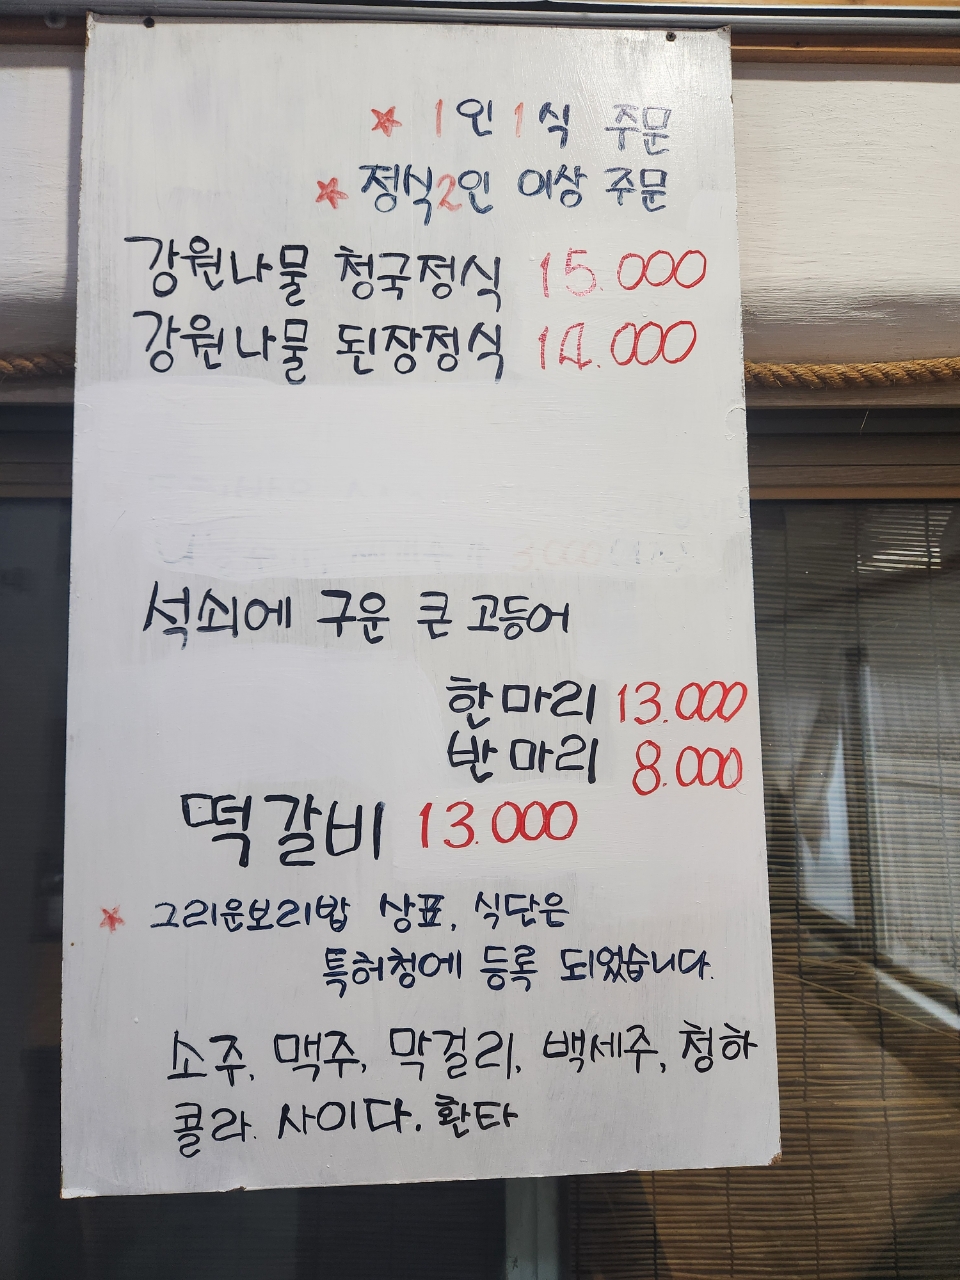 ★ 1인 1식 주문
★ 정식2인 이상 주문
강원나물 청국정식 15.000
강원나물 된장정식 14.000
석쇠에 구운 큰 고등어
한마리 13.000
반마리 8.000
떡갈비 13.000
★ 그리운보리밥 상표, 식단은
특허청에 등록 되었습니다.
소주, 맥주, 막걸리, 백세주, 청하
콜라. 사이다. 환타